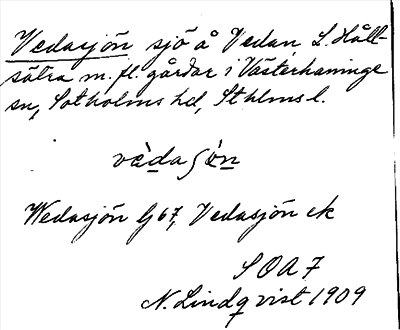 Vedasjön sjö å Vedan, L. Håll-
sätra m. fl. gårdar i Västerhaninge
sn, Sotholms hd, Sthlms l.
vèdaʃön
Wedasjön Gj 67, Vedasjön ek
SOA 7
N. Lindqvist 1909